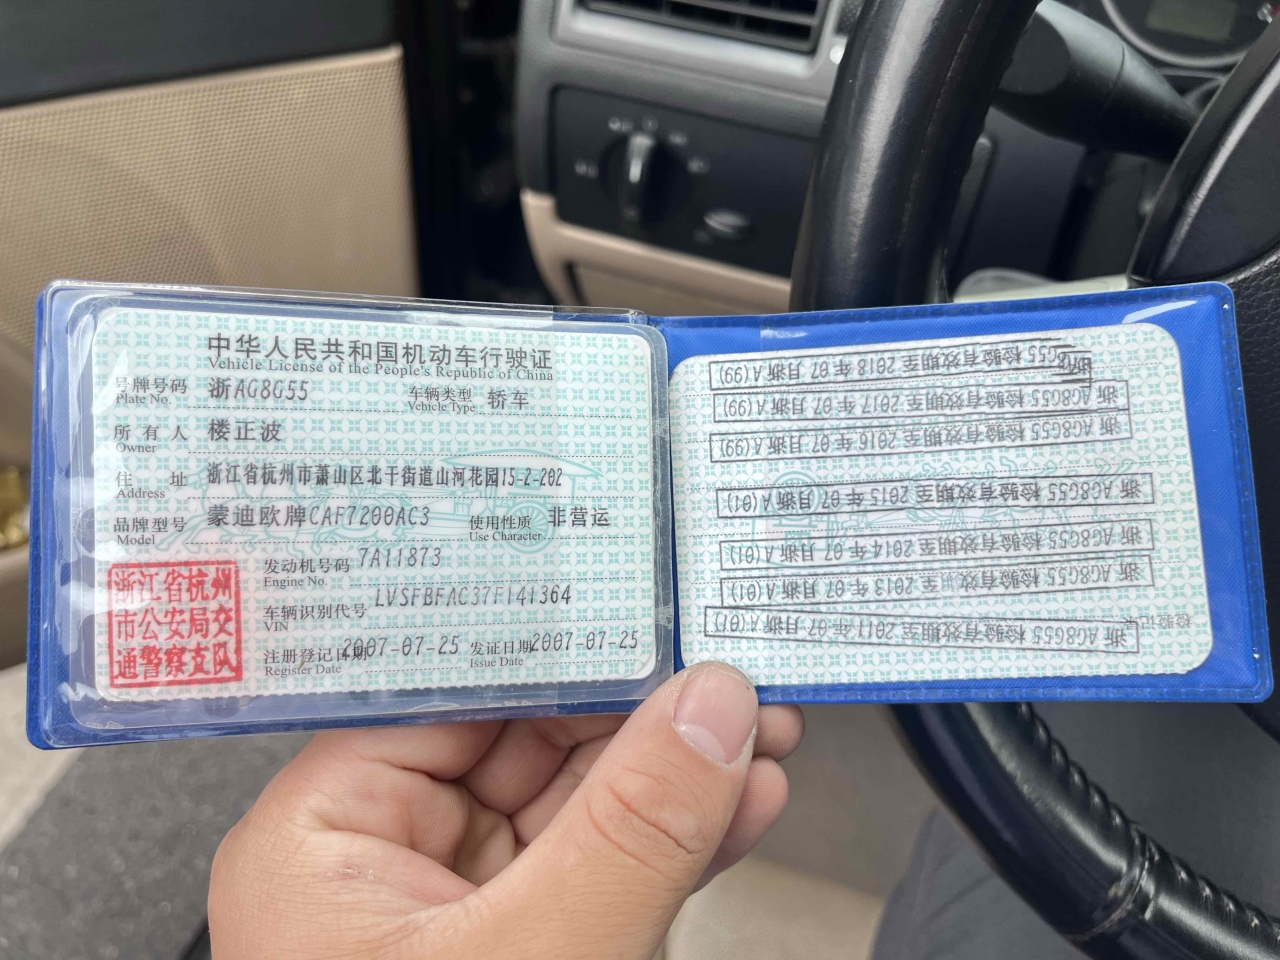 中华人民共和国机动车行驶证
Vehicle License of the People's Republic of China
号牌号码 浙AG8G55 车辆类型 轿车
Plate No. Vehicle Type
所有人 楼正波
Owner
住址 浙江省杭州市萧山区北干街道山河花园15-2-202
Address
品牌型号 蒙迪欧牌CAF7200AC3 使用性质 非营运
Model Use Character
发动机号码 7A11873
Engine No.
车辆识别代号 LVSFBFAC37F141364
VIN
注册登记日期 2007-07-25 发证日期 2007-07-25
Register Date Issue Date
浙江省杭州
市公安局交
通警察支队
检验记录
浙 AG8G55 检验有效期至 2011年 07 月浙 A(01)
浙 AG8G55 检验有效期至 2013年 07 月浙 A(01)
浙 AG8G55 检验有效期至 2014年 07 月浙 A(01)
浙 AG8G55 检验有效期至 2015年 07 月浙 A(01)
浙 AG8G55 检验有效期至 2016年 07 月浙 A(99)
浙 AG8G55 检验有效期至 2017年 07 月浙 A(99)
G55 检验有效期至 2018年 07 月浙 A(99)